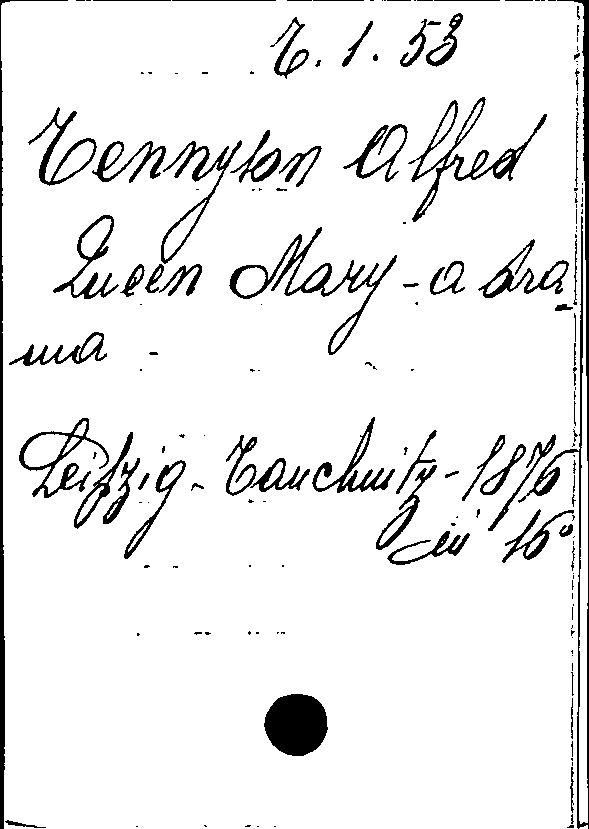 T. 1. 53
Tennyson Alfred
Queen Mary - a dra_
ma -
Leipzig - Tauchnitz - 1876
in 16°